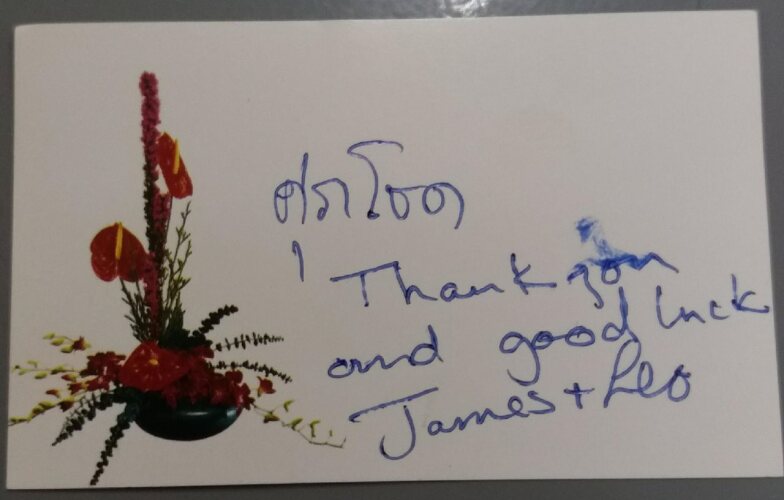 ศุภโชค
Thank you
and good luck
James + Leo